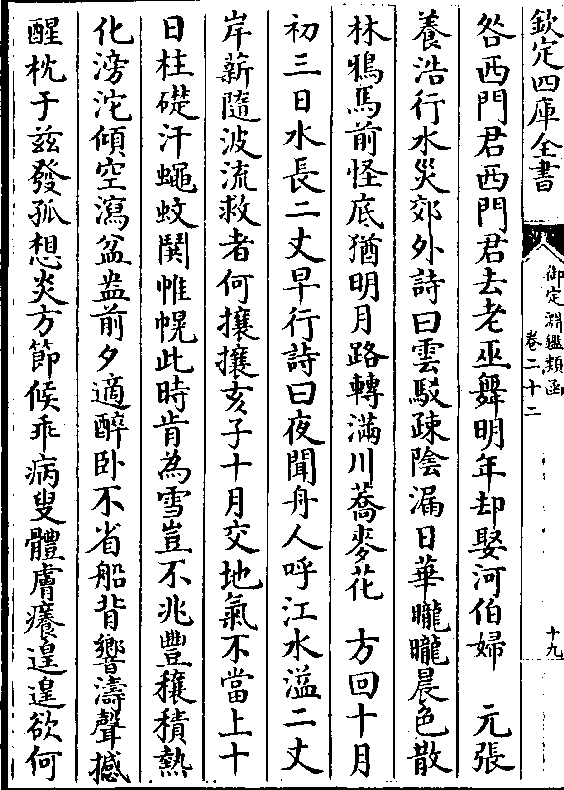 欽定四庫全書
御定淵鑑類函
卷二十二
十九
咎西門君西門君去老巫舞明年却娶河伯婦　元張
養浩行水災郊外詩曰雲駁疎隂漏日華曨曨晨色散
林鴉馬前怪底猶明月路轉滿川蕎麥花　方回十月
初三日水長二丈早行詩曰夜聞舟人呼江水溢二丈
岸薪隨波流救者何攘攘亥子十月交地氣不當上十
日柱礎汗蠅蚊鬨帷幌此時肯為雪豈不兆豐穰積熱
化滂沱傾空瀉盆盎前夕適醉卧不省船背響濤聲撼
醒枕于兹發孤想炎方節候乖病叟體膚癢遑遑欲何